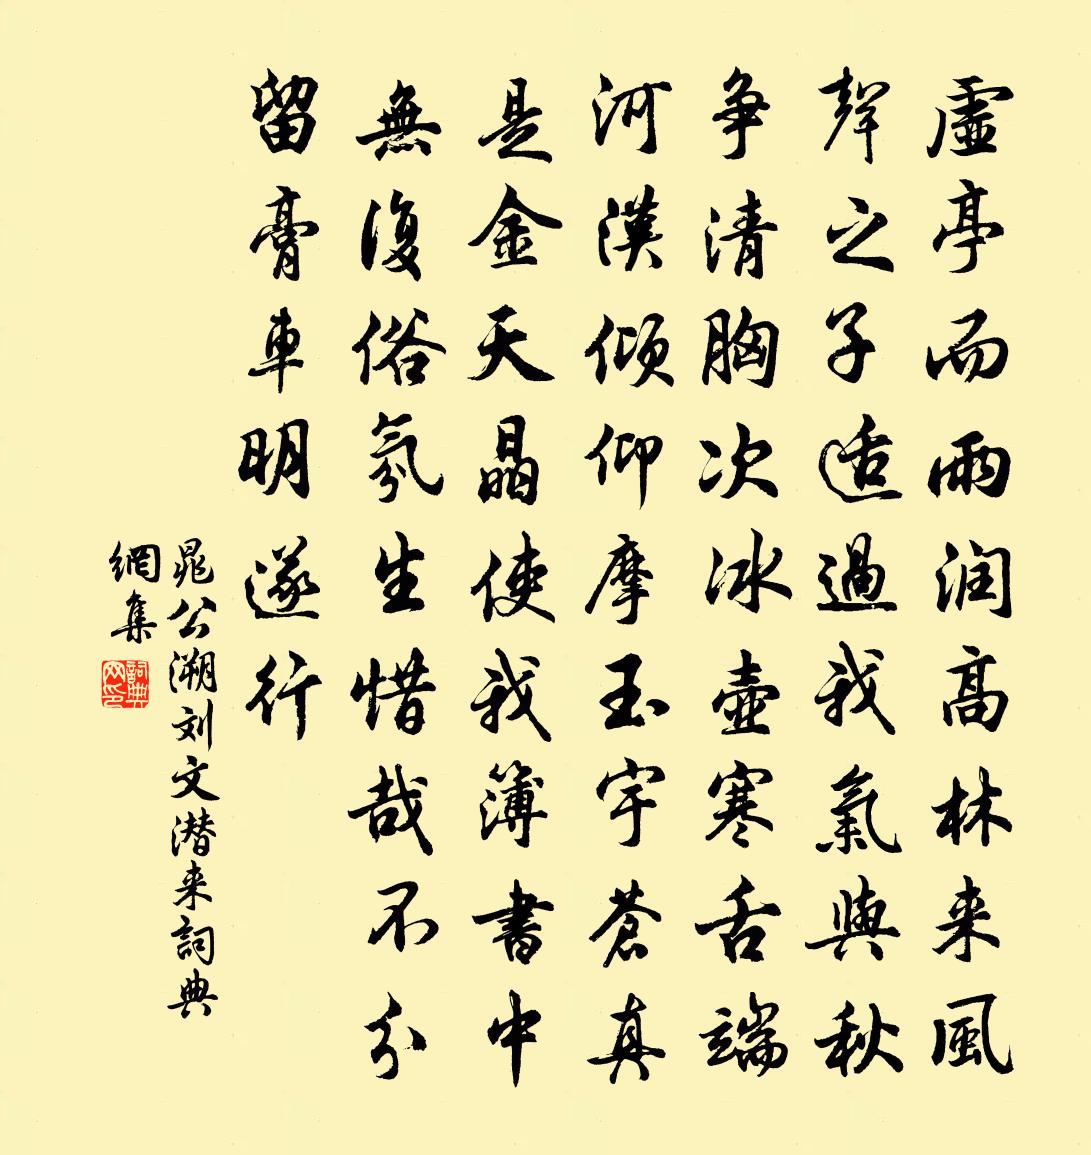 虛亭而雨润高林来風
聲之子适過我氣與秋
争清胸次冰壺寒舌端
河漢倾仰摩玉宇蒼真
是金天晶使我簿書中
無復俗氛生惜哉不分
留膏車明遂行
晁公溯刘文潜来詞典
網集
詞典网印